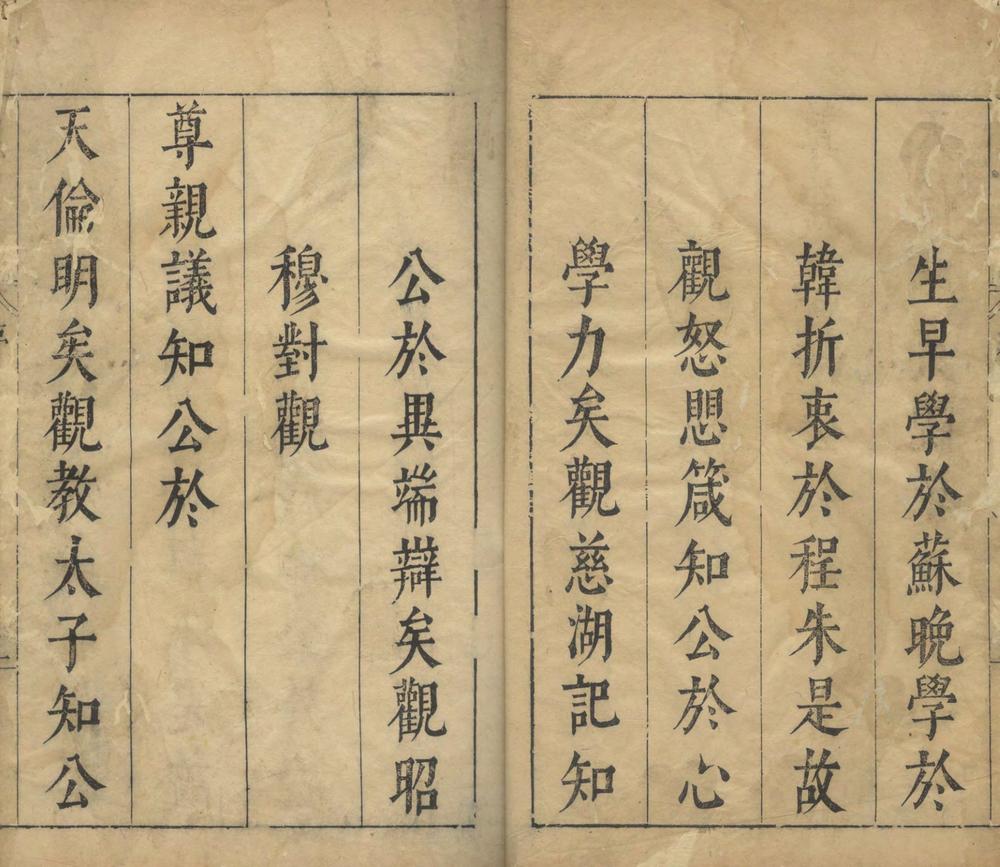 生早學於蘇晚學於
韓折衷於程朱是故
觀怒愳箴知公於心
學力矣觀慈湖記知
公於異端辯矣觀昭
穆對觀
尊親議知公於
天倫明矣觀教太子知公